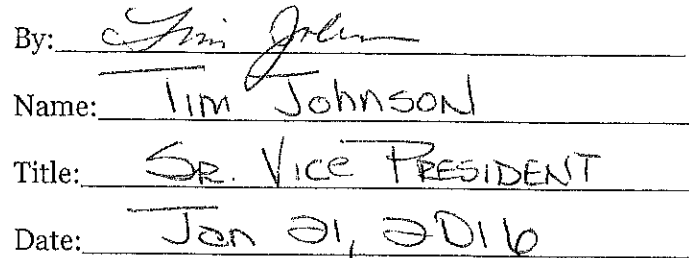 By: Tim Johnson
Name: Tim Johnson
Title: Sr. Vice President
Date: Jan 21, 2016